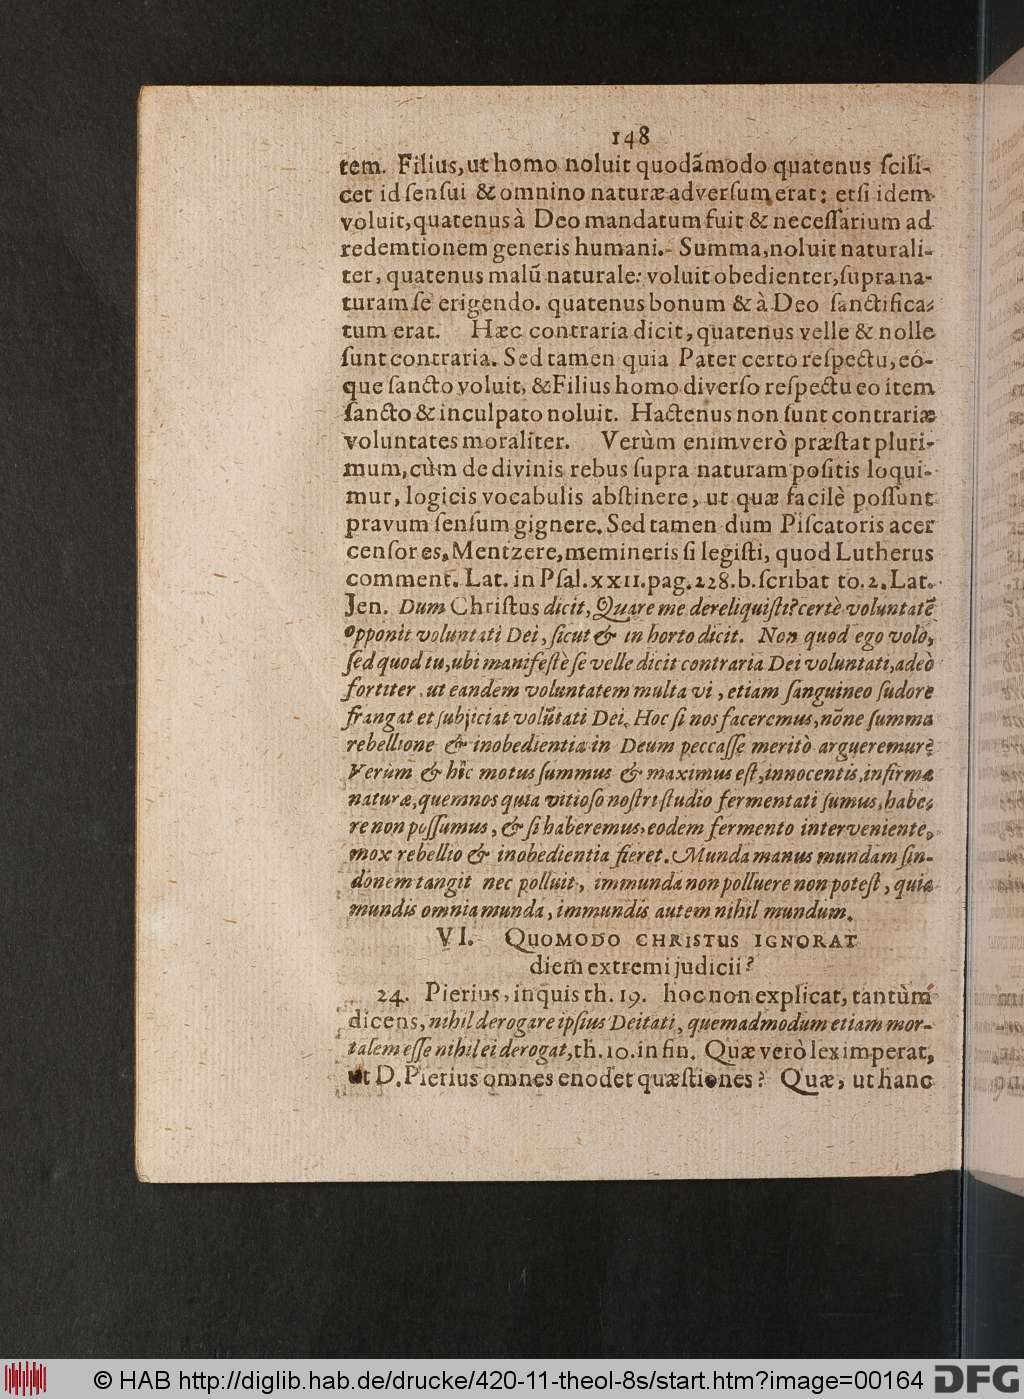 148
tem. Filius, ut homo noluit quodãmodo quatenus ſcili-
cet id ſenſui & omnino naturæ adverſum erat: etſi idem
voluit, quatenus à Deo mandatum fuit & neceſſarium ad
redemtionem generis humani. Summa, noluit naturali-
ter, quatenus malũ naturale: voluit obedienter, ſupra na-
turam ſe erigendo. quatenus bonum & à Deo ſanctifica-
tum erat. Hæc contraria dicit, quatenus velle & nolle
ſunt contraria. Sed tamen quia Pater certo reſpectu, eó-
que ſancto voluit, & Filius homo diverſo reſpectu eo item
ſancto & inculpato noluit. Hactenus non ſunt contrariæ
voluntates moraliter. Verùm enimverò præſtat pluri-
mum, cùm de divinis rebus ſupra naturam poſitis loqui-
mur, logicis vocabulis abſtinere, ut quæ facilè poſſunt
pravum ſenſum gignere. Sed tamen dum Piſcatoris acer
cenſor es, Mentzere, memineris ſi legiſti, quod Lutherus
comment. Lat. in Pſal. XXII. pag. 228. b. ſcribat to. 2. Lat.
Jen. Dum Chriſtus dicit, Quare me dereliquiſti? certè voluntatẽ
opponit voluntati Dei, ſicut & in horto dicit. Non quod ego volo,
ſed quod tu, ubi manifeſtè ſe velle dicit contraria Dei voluntati, adeò
fortiter, ut eandem voluntatem multa vi, etiam ſanguineo ſudore
frangat et ſubjiciat volũtati Dei. Hoc ſi nos faceremus, nõne ſumma
rebellione & inobedientia in Deum peccaſſe meritò argueremur?
Verùm & hîc motus ſummus & maximus eſt, innocentis, infirmæ
naturæ, quem nos quia vitioſo noſtri ſtudio fermentati ſumus, habe-
re non poſſumus, & ſi haberemus, eodem fermento interveniente,
mox rebellio & inobedientia fieret. Munda manus mundam ſin-
donem tangit nec polluit, immunda non polluere non poteſt, quia
mundis omnia munda, immundis autem nihil mundum.
VI. QUOMODO CHRISTUS IGNORAT
diem extremi judicii?
24. Pierius, inquis th. 19. hoc non explicat, tantùm
dicens, nihil derogare ipſius Deitati, quemadmodum etiam mor-
talem eſſe nihil ei derogat, th. 10. in fin. Quæ verò lex imperat,
ut D. Pierius omnes enodet quæſtiones? Quæ, ut hanc
© HAB http://diglib.hab.de/drucke/420-11-theol-8s/start.htm?image=00164
DFG